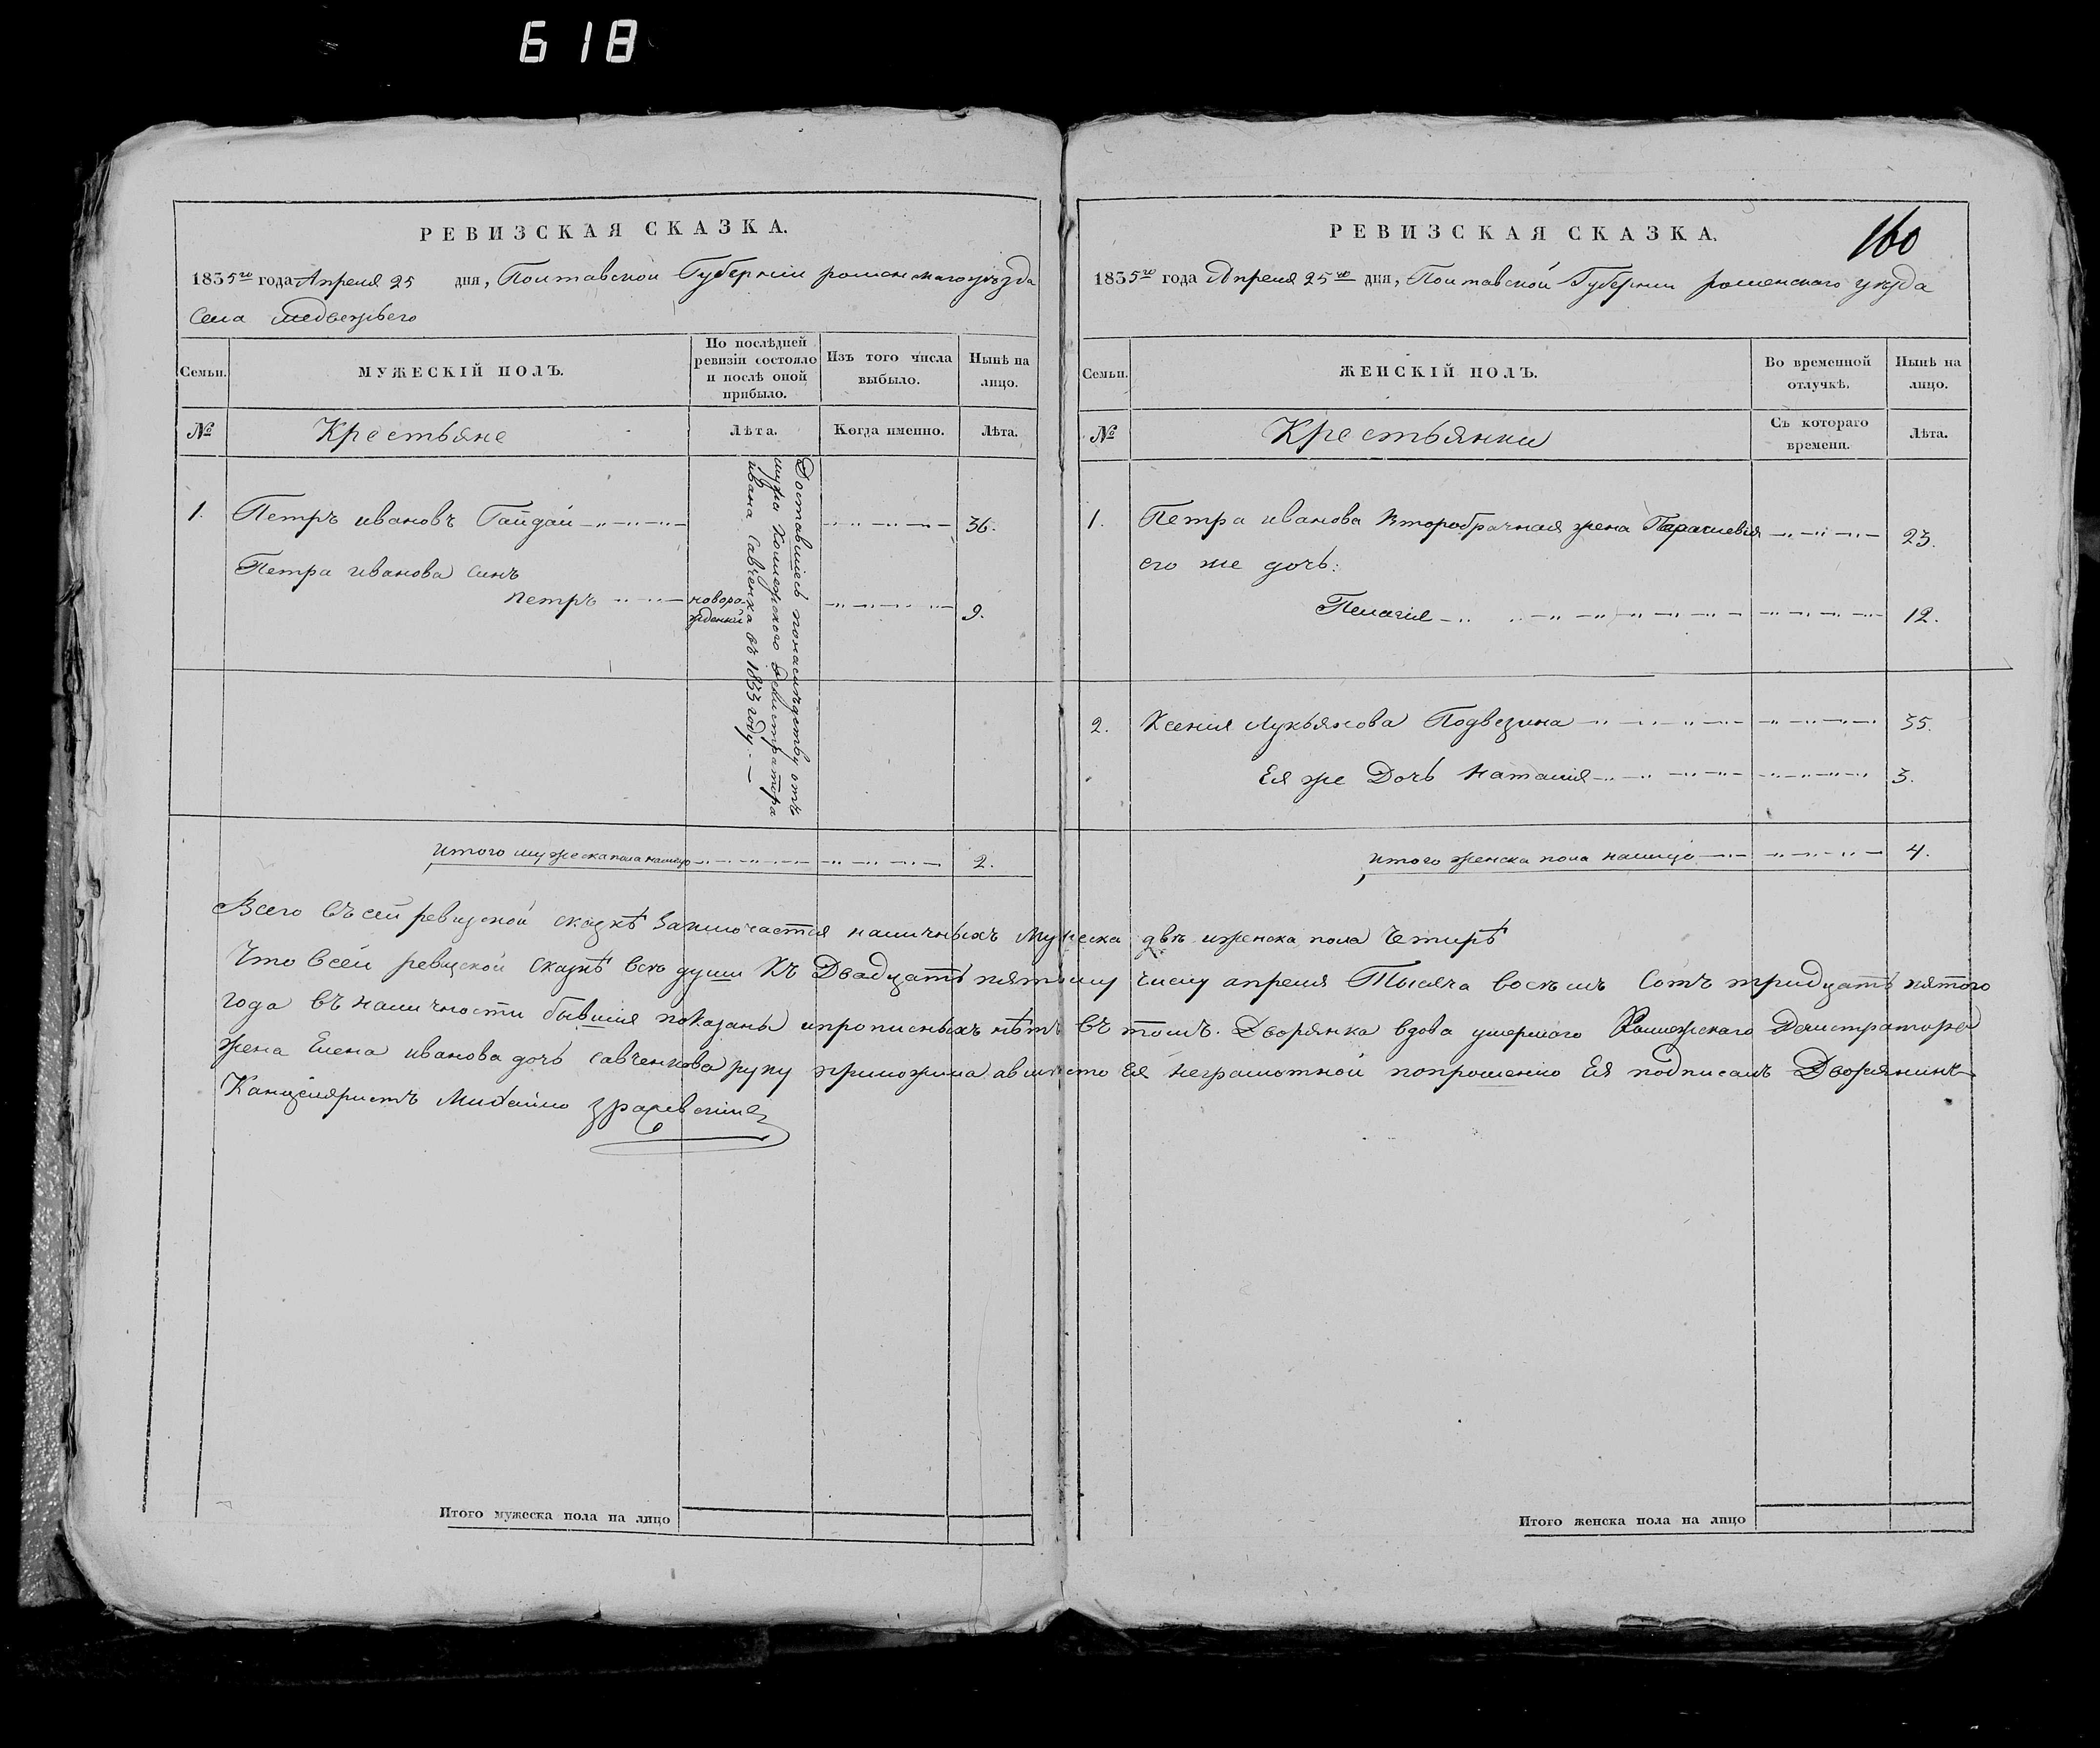 618
РЕВИЗСКАЯ СКАЗКА.
1835го года Апреля 25 дня, Полтавской Губернии роменского уѣзда
Села Медвежьего
Семьи.
МУЖЕСКІЙ ПОЛЪ.
По послѣдней ревизіи состояло и послѣ оной прибыло.
Изъ того числа выбыло.
Нынѣ на лицо.
№
Крестьяне
Лѣта.
Когда именно.
Лѣта.
1. Петръ ивановъ Гайдай 36.
Петра иванова синъ
петръ новорожденній 9.
Доставшіесь понаслѣдству отъ
мужа Колежского Регистратора
ивана Савченка въ 1833 году.
Итого мужеска пола налицо 2.
РЕВИЗСКАЯ СКАЗКА.
160
1835го года Апреля 25го дня, Полтавской Губернии роменского уезда
Семьи.
ЖЕНСКІЙ ПОЛЪ.
Во временной отлучкѣ.
Нынѣ на лицо.
№
Крестьянки
Съ котораго времени.
Лѣта.
1. Петра иванова второбрачная жена Параскевія 23.
его же дочь:
Пелагія 12.
2. Ксенія Лукьянова 35.
Ея же Дочь Наталія 3.
Итого женска пола налицо 4.
Всего въ сей ревизской сказкѣ Заключается наличныхъ Мужеска двѣ иженска пола Четирѣ
Что всей ревизской сказкѣ все души Къ Двадцать пятому числу апреля Тысяча восемъ Сотъ тридцать пятого
года въ наличности бывшія показаны ипрописныхъ нѣтъ въ томъ. Дворянка вдова умершого
жена Елена иванова дочь Савченкова руку приложила авместо Ея неграмотной попрошенію Ея подписалъ Дворянинъ
Канцеляристъ Михайло
Итого мужеска пола на лицо
Итого женска пола на лицо